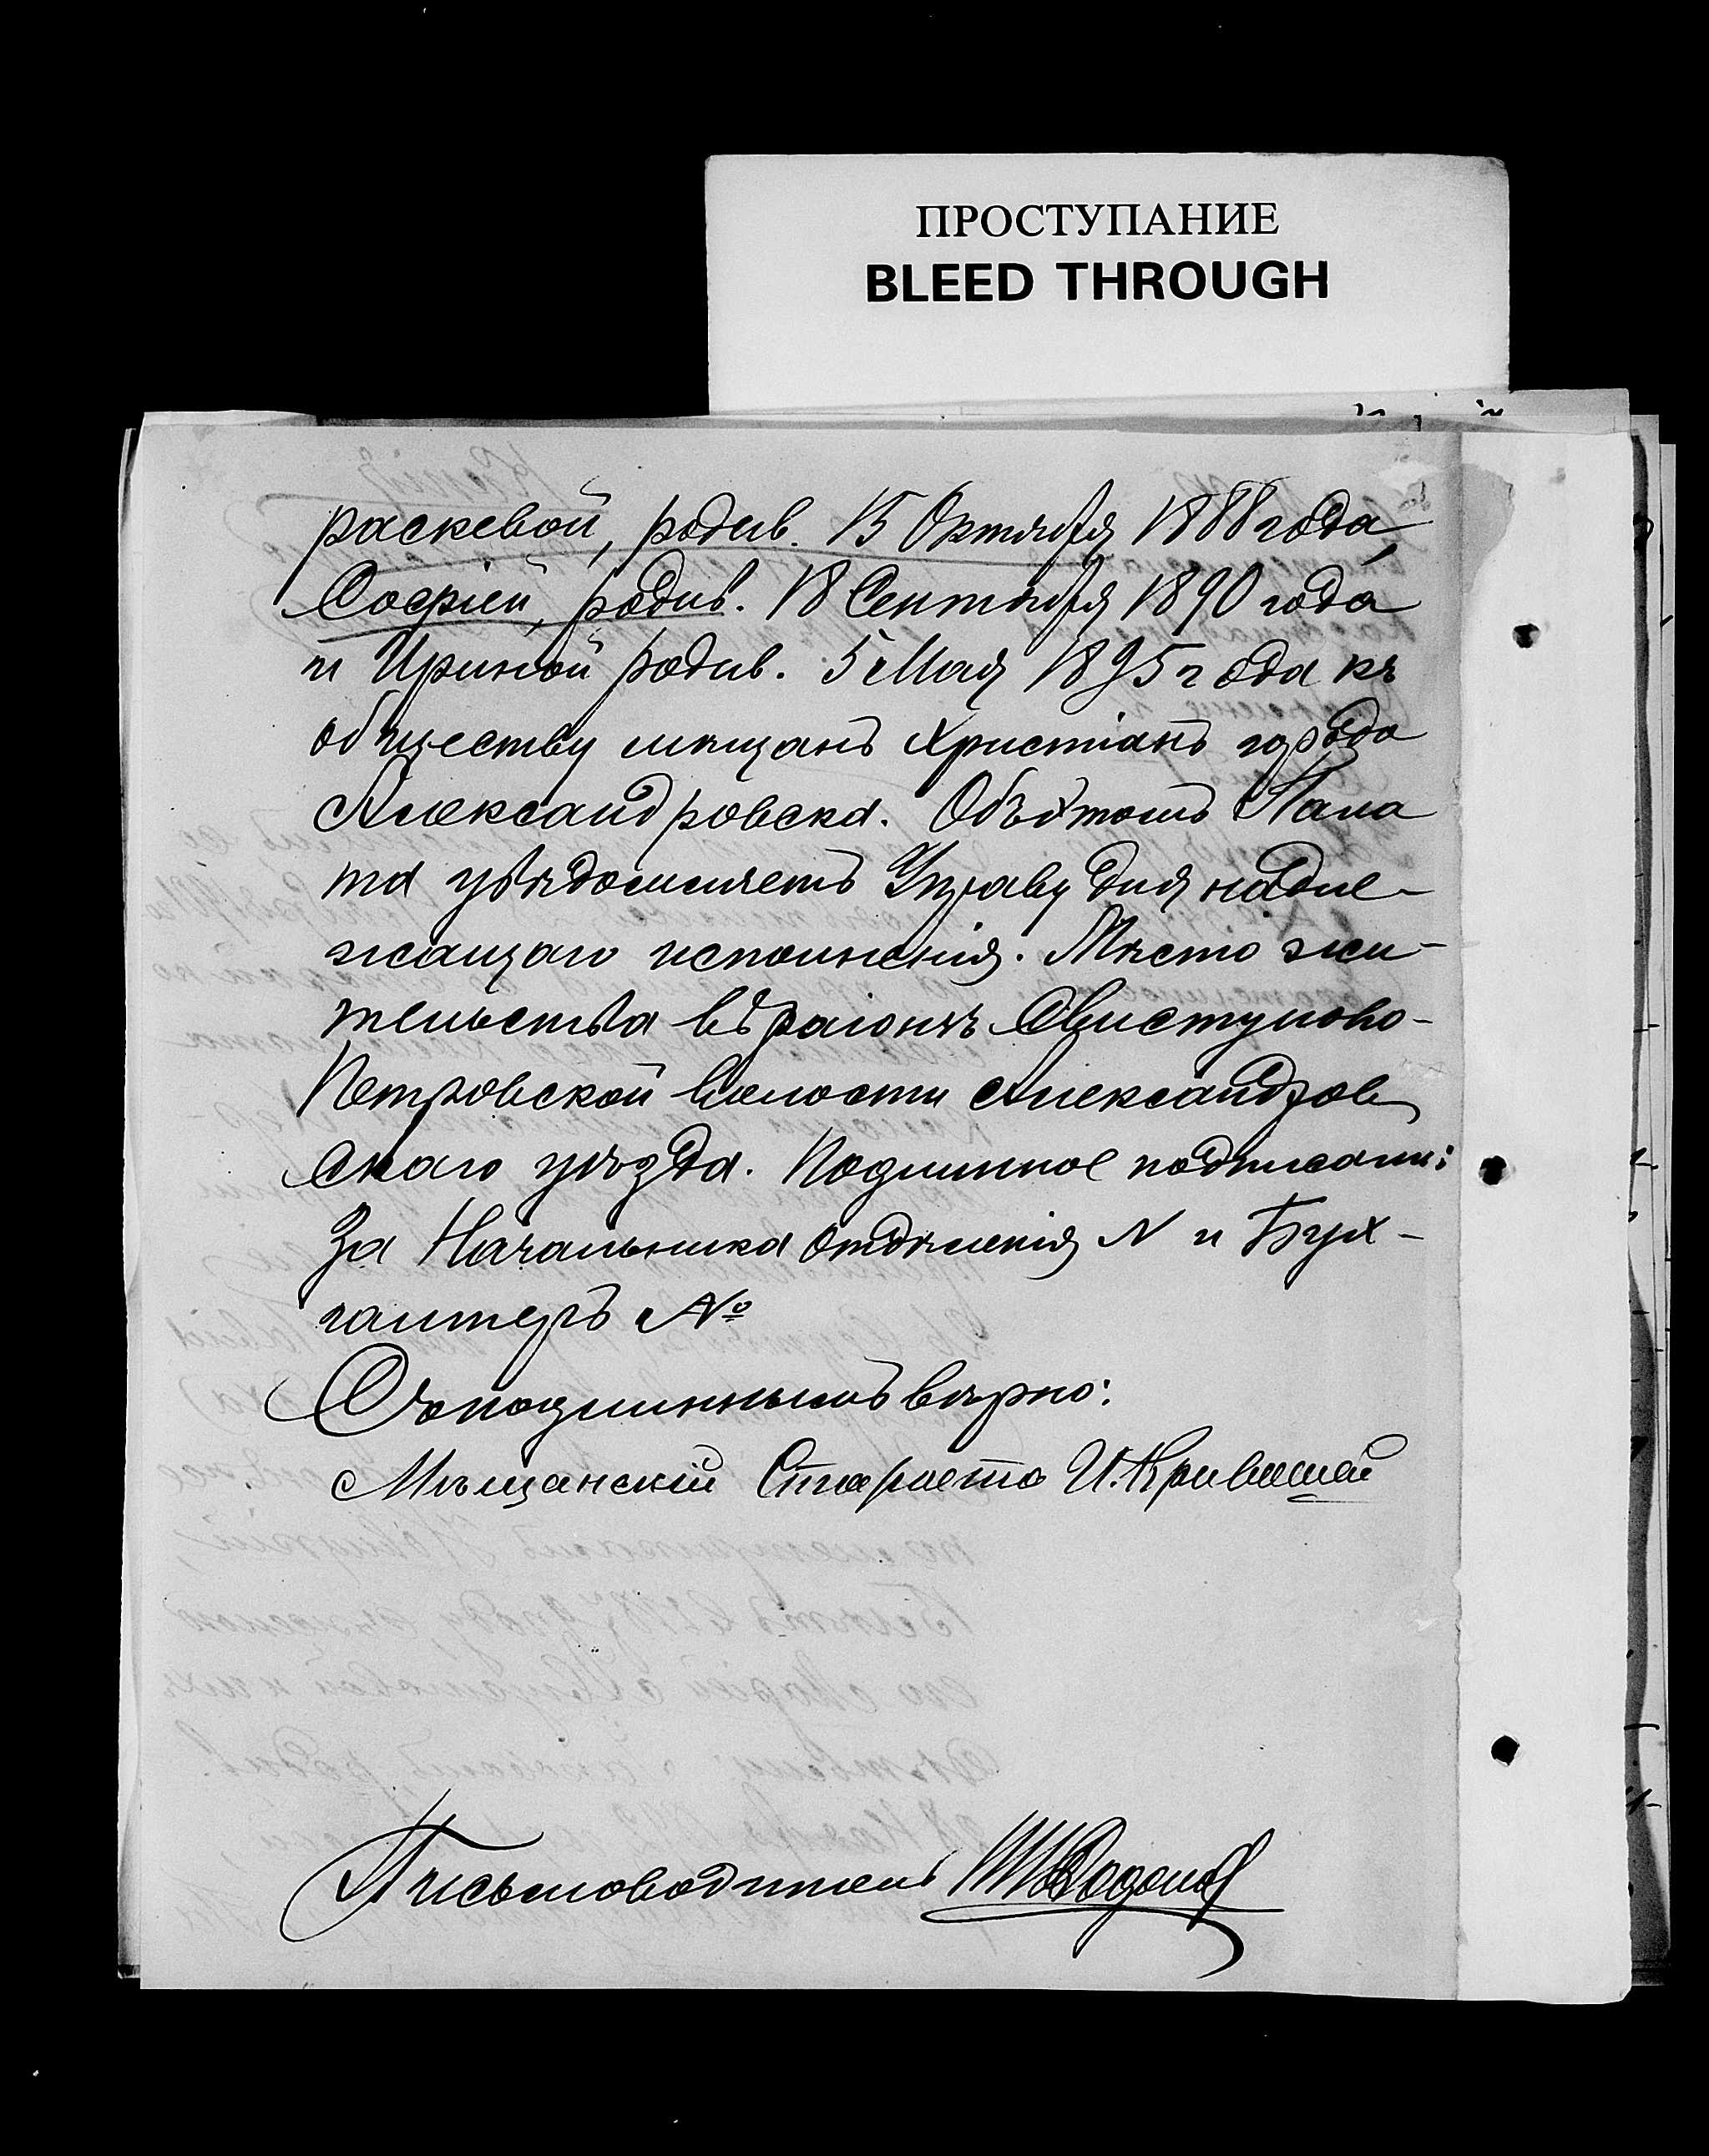 ПРОСТУПАНИЕ
BLEED THROUGH
раскевой, родив. 15 Октября 1888 года,
Софiей, родив. 18 Сентября 1890 года
и Ириной родив. 5 Мая 1895 года къ
обществу мѣщанъ Христiанъ города
Александровска. Объ этомъ Пала
та увѣдомляетъ Управу для надле-
жащаго исполненiя. Мѣсто жи-
тельства въ раiонѣ Свистуново-
Петровской волости Александров
скаго уѣзда. Подлинное подписали:
За Начальника Отдѣленiя N и Бух-
галтеръ №
Съ подлиннымъ вѣрно:
Мѣщанскiй Староста И.
Письмоводитель